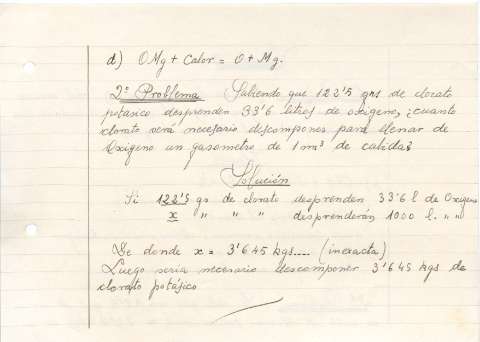 d) OMg + Calor = O + Mg.
2º Problema Sabiendo que 122'5 grs de clorato
potasico desprenden 33'6 litros de oxigeno, ¿cuanto
clorato será necesario descomponer para llenar de
Oxigeno un gasometro de 1 m³ de cabida?
Solución
Si 122'5 gs de clorato desprenden 33'6 l de Oxigeno
x " " " desprenderán 1000 l. " "
De donde x = 3'645 kgs.... (inexacta)
Luego seria necesario descomponer 3'645 kgs de
clorato potásico